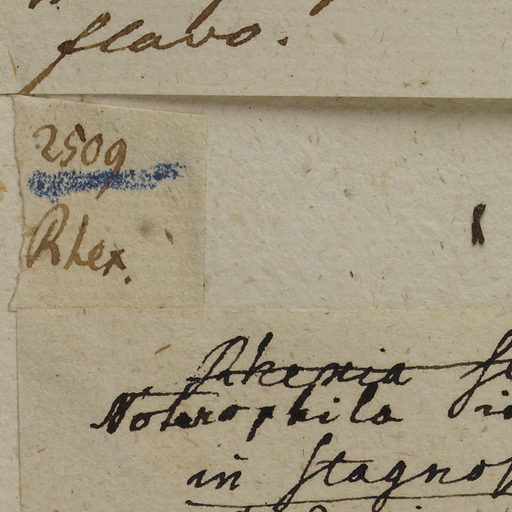 flavo.
2509
Rhex.
Rhexia
Noterophila
in stagnos